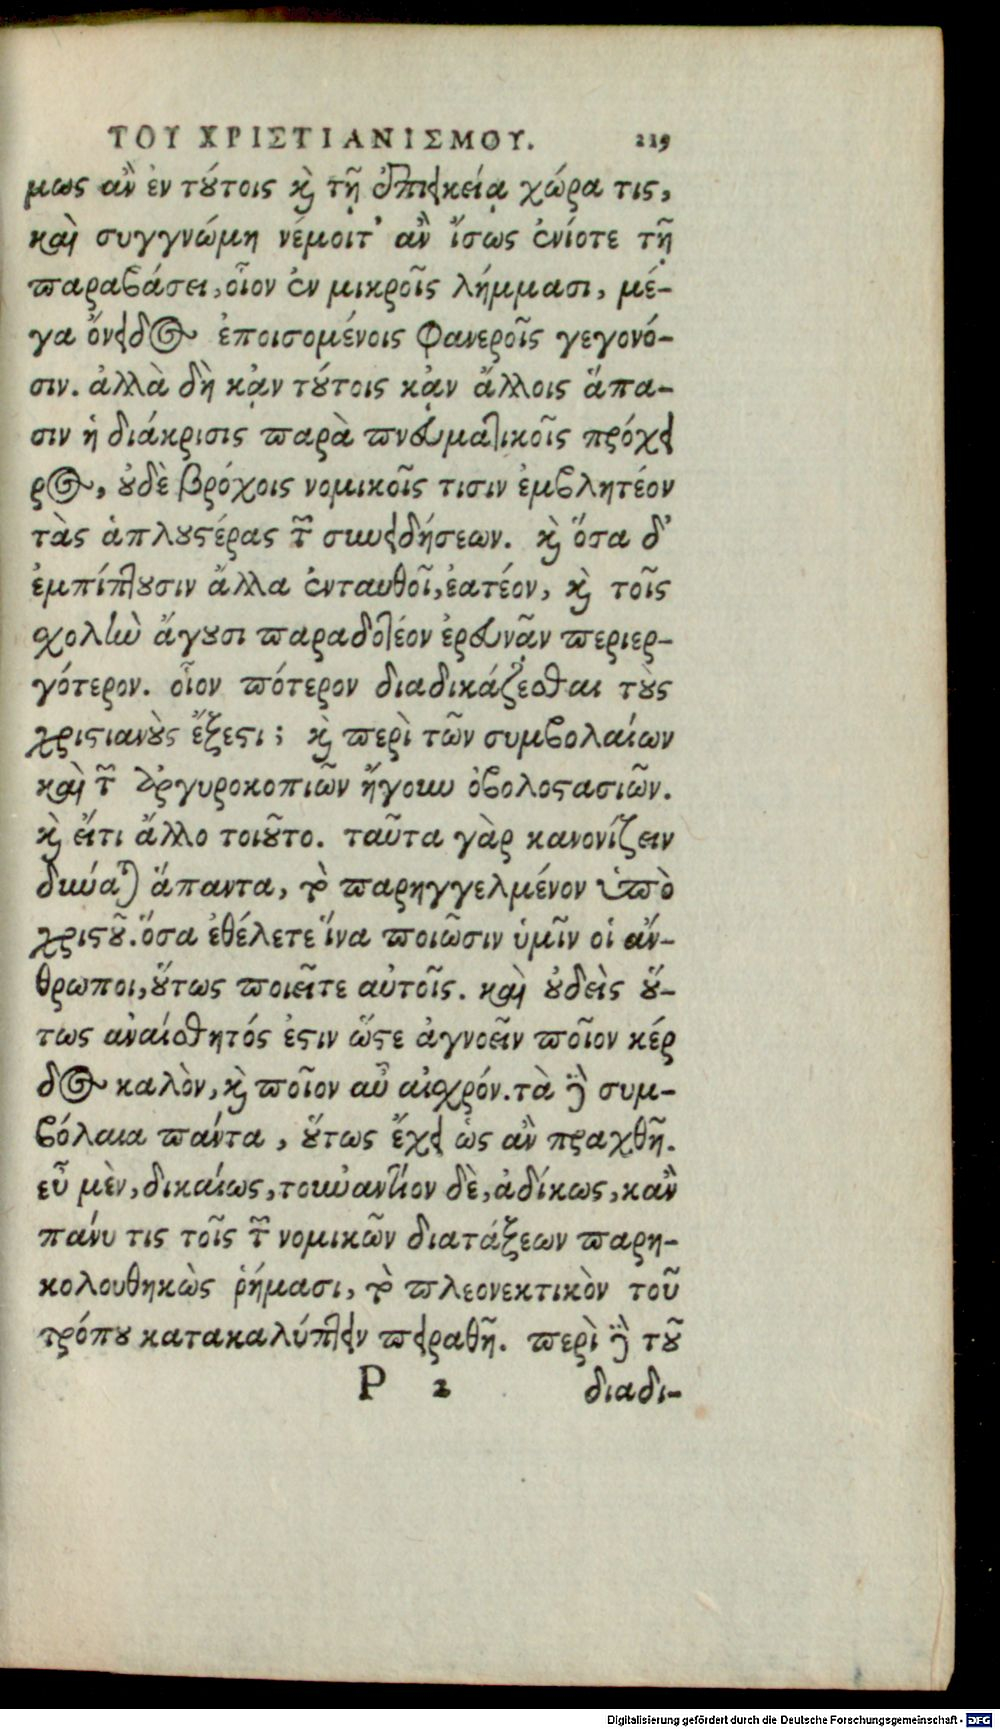 ΤΟΥ ΧΡΙΣΤΙΑΝΙΣΜΟΥ. 219
μως ἂν ἐν τούτοις καὶ τῇ ἐπιεικείᾳ χώρα τις,
καὶ συγγνώμη νέμοιτ' ἂν ἴσως ἐνίοτε τῇ
παραβάσει, οἷον ἐν μικροῖς λήμμασι, μέ-
γα ὄνειδος ἐποισομένοις φανεροῖς γεγονό-
σιν. ἀλλὰ δὴ κᾂν τούτοις κᾂν ἄλλοις ἅπα-
σιν ἡ διάκρισις παρὰ πνευματικοῖς πρόχει
ρος, οὐδὲ βρόχοις νομικοῖς τισιν ἐμβλητέον
τὰς ἁπλουστέρας τῶν συνειδήσεων. καὶ ὅσα δ'
ἐμπίπτουσιν ἄλλα ἐνταυθοῖ, ἐατέον, καὶ τοῖς
σχολὴν ἄγουσι παραδοτέον ἐρευνᾷν περιερ-
γότερον. οἷον πότερον διαδικάζεσθαι τοὺς
χριστιανοὺς ἔξεστι; καὶ περὶ τῶν συμβολαίων
καὶ τῶν ἀργυροκοπιῶν ἤγουν ὀβολοστασιῶν.
καὶ εἴτι ἄλλο τοιοῦτο. ταῦτα γὰρ κανονίζειν
δύναται ἅπαντα, τὸ παρηγγελμένον ὑπὸ
χριστοῦ. ὅσα ἐθέλετε ἵνα ποιῶσιν ὑμῖν οἱ ἄν-
θρωποι, οὕτως ποιεῖτε αὐτοῖς. καὶ οὐδεὶς οὕ-
τως ἀναίσθητός ἐστιν ὥστε ἀγνοεῖν ποῖον κέρ
δος καλὸν, καὶ ποῖον αὖ αἰσχρόν. τὰ γὰρ συμ-
βόλαια πάντα, οὕτως ἔχει ὡς ἂν πραχθῇ.
εὖ μὲν, δικαίως, τοὐναντίον δὲ, ἀδίκως, κἂν
πάνυ τις τοῖς τῶν νομικῶν διατάξεων παρη-
κολουθηκὼς ῥήμασι, τὸ πλεονεκτικὸν τοῦ
τρόπου κατακαλύπτειν πειραθῇ. περὶ γὰρ τοῦ
P 2 διαδι-
Digitalisierung gefördert durch die Deutsche Forschungsgemeinschaft - DFG